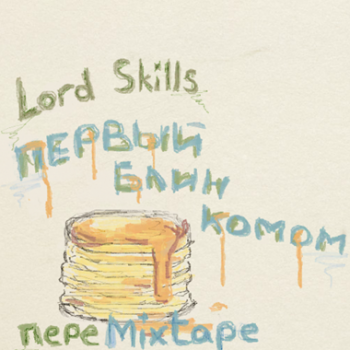 Lord Skills
ПЕРВЫЙ
БЛИН
КОМОМ
переMixtape